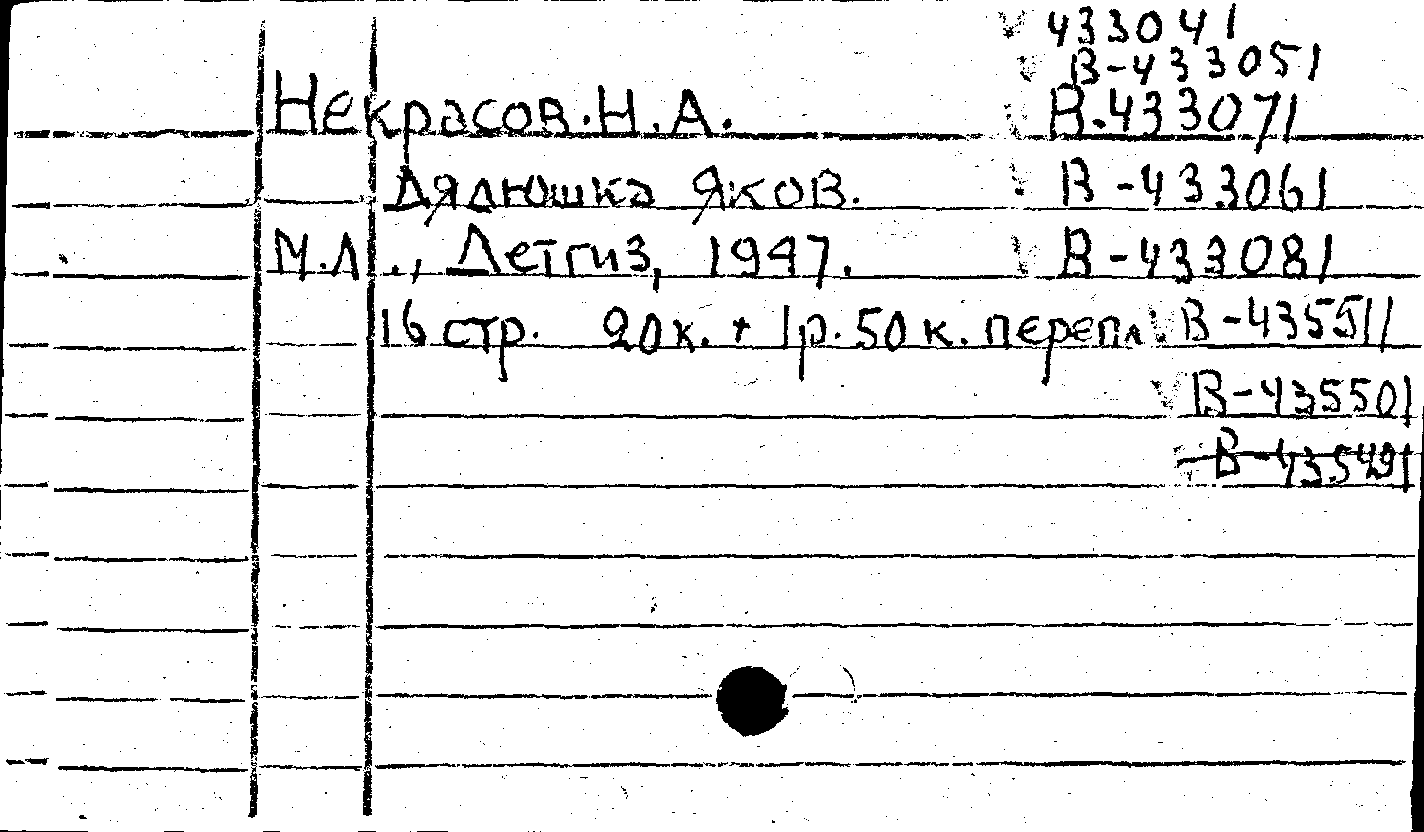 433041
В-433051
Некрасов.Н.А. В.433071
Дядюшка Яков. В-433061
М.Л., Детгиз, 1947. В-433081
16 стр. 20к. + 1р.50к. перепл. В-435511
В-435501
В-435491